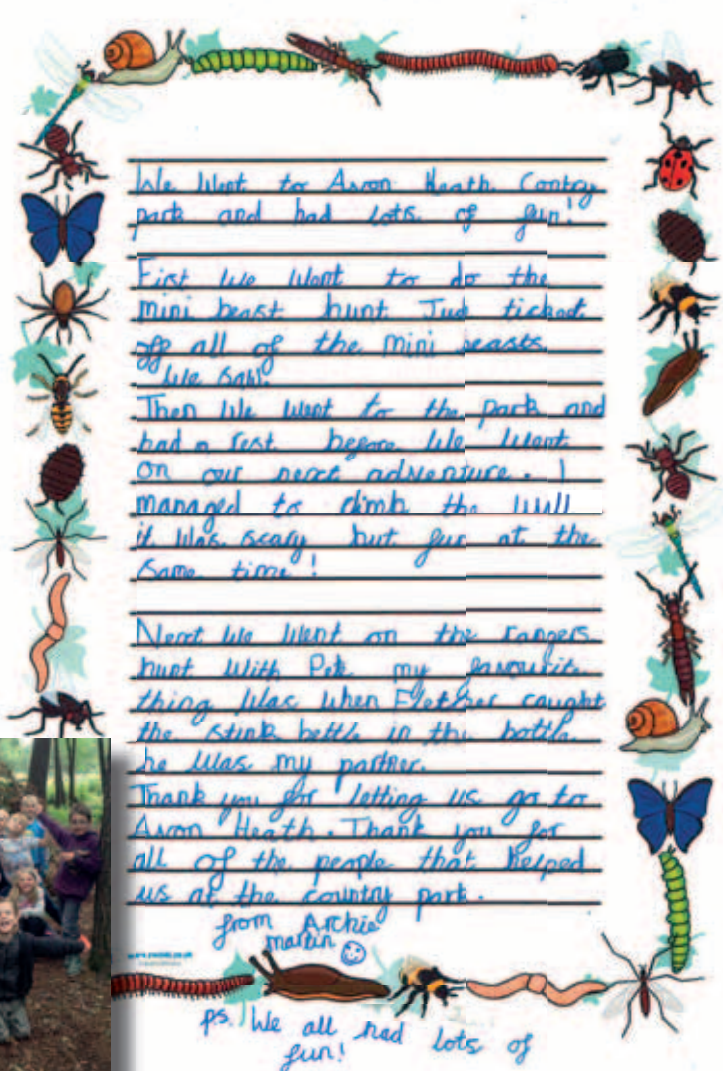 We Went to Avon Heath Contry
park and had lots of fun!
First We Went to do the
mini beast hunt Jud ticked
off all of the mini beasts
We saw.
Then We Went to the park and
had a rest before We Went
on our next adventure. I
managed to climb the Wall
it Was scary but fun at the
same time!
Next We Went on the rangers
hunt With Pete my favourite
thing Was When Fletcher caught
the stink bettle in the bottle
he Was my partner.
Thank you for letting us go to
Avon Heath. Thank you for
all of the people that helped
us at the country park.
from Archie
martin
ps. We all had lots of
fun!